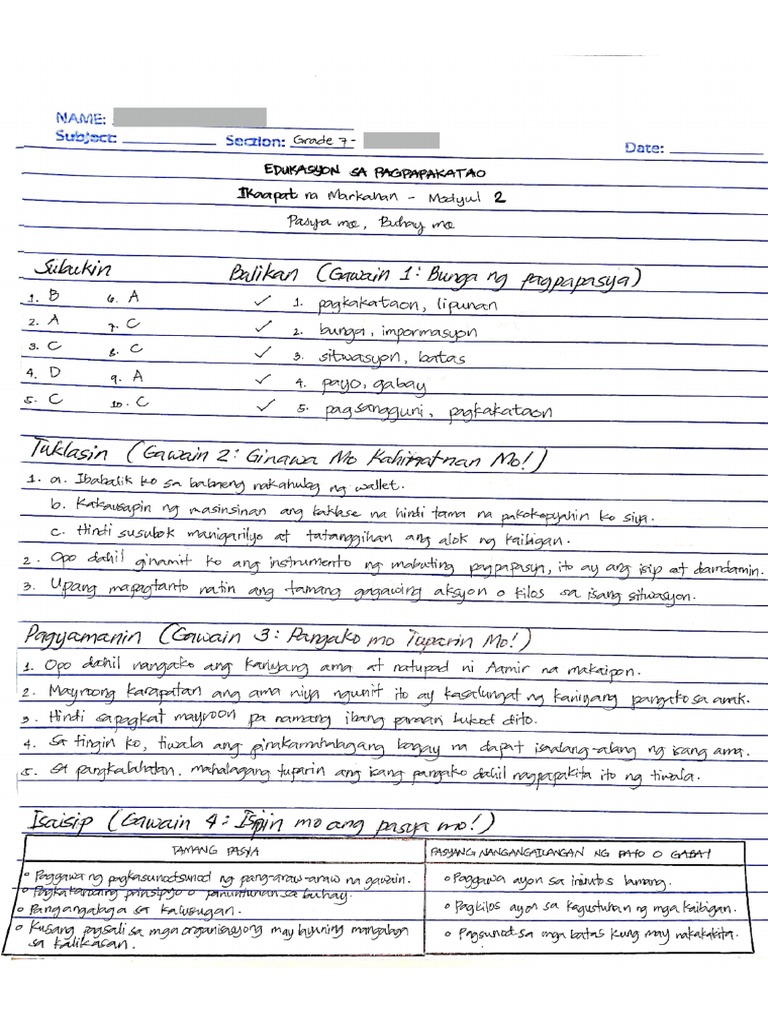 NAME:
Subject: Section: Grade 7 - Date:
EDUKASYON SA PAGPAPAKATAO
Ikaapat na Markahan - Modyul 2
Pasya mo, Buhay mo
Subukin Balikan (Gawain 1: Bunga ng pagpapasya)
1. B 6. A ✓ 1. pagkakataon, lipunan
2. A 7. C ✓ 2. bunga, impormasyon
3. C 8. C ✓ 3. sitwasyon, batas
4. D 9. A ✓ 4. payo, gabay
5. C 10. C ✓ 5. pagsangguni, pagkakataon
Tuklasin (Gawain 2: Ginawa Mo Kahimatnan Mo!)
1. a. Ibabalik ko sa babaeng nakahulog ng wallet.
b. Kakausapin ng masinsinan ang kaklase na hindi tama na pakokopyahin ko siya.
c. Hindi susubok manigarilyo at tatanggihan ang alok ng kaibigan.
2. Opo dahil ginamit ko ang instrumento ng mabuting pagpapasya, ito ay ang isip at damdamin.
3. Upang mapagtanto natin ang tamang gagawing aksyon o kilos sa isang sitwasyon.
Pagyamanin (Gawain 3: Pangako mo Tuparin Mo!)
1. Opo dahil nangako ang kaniyang ama at natupad ni Aamir na makaipon.
2. Mayroong karapatan ang ama niya ngunit ito ay kasalungat ng kaniyang pangako sa anak.
3. Hindi sapagkat mayroon pa namang ibang paraan bukod dito.
4. Sa tingin ko, tiwala ang pinakamahalagang bagay na dapat isaalang-alang ng isang ama.
5. Sa pangkalahatan, mahalagang tuparin ang isang pangako dahil nagpapakita ito ng tiwala.
Isaisip (Gawain 4: Isipin mo ang pasya mo!)
TAMANG PASYA PASYANG NANGANGAILANGAN NG PAYO O GABAY
• Paggawa ng pagkasunod-sunod ng pang-araw-araw na gawain. • Paggawa ayon sa inuutos lamang.
• Pagkakaroong prinsipyo o panuntunan sa buhay.
• Pangangalaga sa kalusugan. • Pagkilos ayon sa kagustuhan ng mga kaibigan.
• Kusang pagsali sa mga organisasyong may layuning mangalaga • Pagsunod sa mga batas kung may nakakakita.
sa kalikasan.